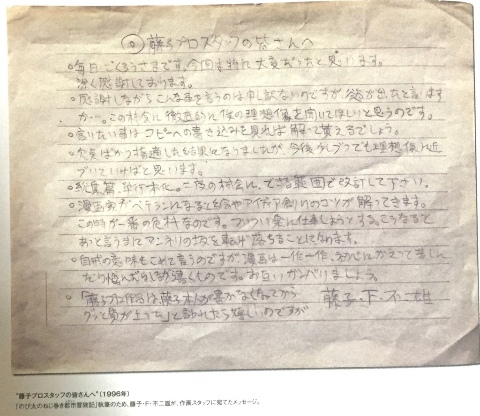 ◎藤子プロスタッフの皆さんへ
○毎日ごくろうさまです。今回は特に大変だったと思います。
深く感謝しております。
○感謝しながらこんな事を言うのは申し訳ないのですが、欲が出たと言いますか…。この機会に徹底的に僕の理想像を聞いてほしいと思うのです。
○言いたい事はコピーへの書き込みを見れば解って貰えるでしょう。
○欠点ばかり指摘した結果になりましたが、今後少しづつでも理想像に近づいていければと思います。
○総集篇、単行本化。この機会に、できる範囲で改訂して下さい。
○漫画家がベテランになると絵やアイディア創りのコツが解ってきます。
この時が一番の危機なのです。ついつい楽に仕事しようとする。こうなると
あっと言うまにマンネリの坂を転げ落ちることになります。
○自戒の意味もこめて言うのですが漫画は一作一作、初心にかえって
だり悩んだりしながら書くものです。お互いがんばりましょう。
○「藤子プロ作品は、藤子本人が書かなくなってから
グッと質が上った」と言われたら嬉しいのですが
藤子・F・不二雄
“藤子プロスタッフの皆さんへ”(1996年)
「のび太のねじ巻き都市冒険記」執筆のため、藤子・F・不二雄が、作画スタッフに宛てたメッセージ。